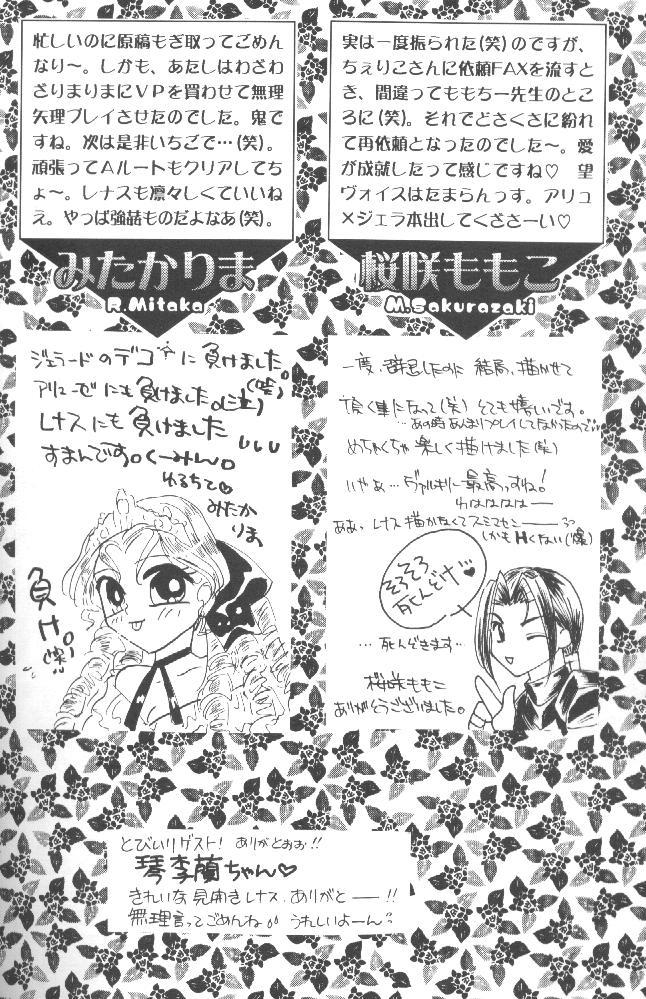 忙しいのに原稿もぎ取ってごめん
なり〜。しかも、あたしはわざわ
ざりまりまにVPを買わせて無理
矢理プレイさせたのでした。鬼で
すね。次は是非いちごで…(笑)。
頑張ってAルートもクリアしてち
ょ〜。レナスも凛々しくていいね
え。やっぱ強喆ものだよなあ(笑)。
みたかりま
R.Mitaka
ジェラードのデコに負けました。
アリューゼにも負けました。(泣)
レナスにも負けました
すまんです。くーみん。
ゆるちて♡
みたか
りま
負け。
実は一度振られた(笑)のですが、
ちぇりこさんに依頼FAXを流すと
き、間違ってももちー先生のとこ
ろに(笑)。それでどさくさに紛れ
て再依頼となったのでした〜。愛
が成就したって感じですね♡ 望
ヴォイスはたまらんっす。アリュ
×ジェラ本出してくださーい♡
桜咲ももこ
M.Sakurazaki
一度、辞退したのに結局、描かせて
頂く事になって(笑)とても嬉しいです。
…あの時あんまりプレイしてなかったので…
めちゃくちゃ楽しく描けました(笑)
いやぁ…ヴァルキリに最高っすね!
わはははは—
ああ、レナス描かなくてスミマセン——
しかもHくない(爆)
そろそろ
死んどけ…♥
…死んどきます…
桜咲ももこ
ありがとうございました。
とびいりゲスト! ありがとおお!!
琴李蘭ちゃん♡
きれいな見開きレナス、ありがと——!!
無理言ってごめんね うれしいよーん